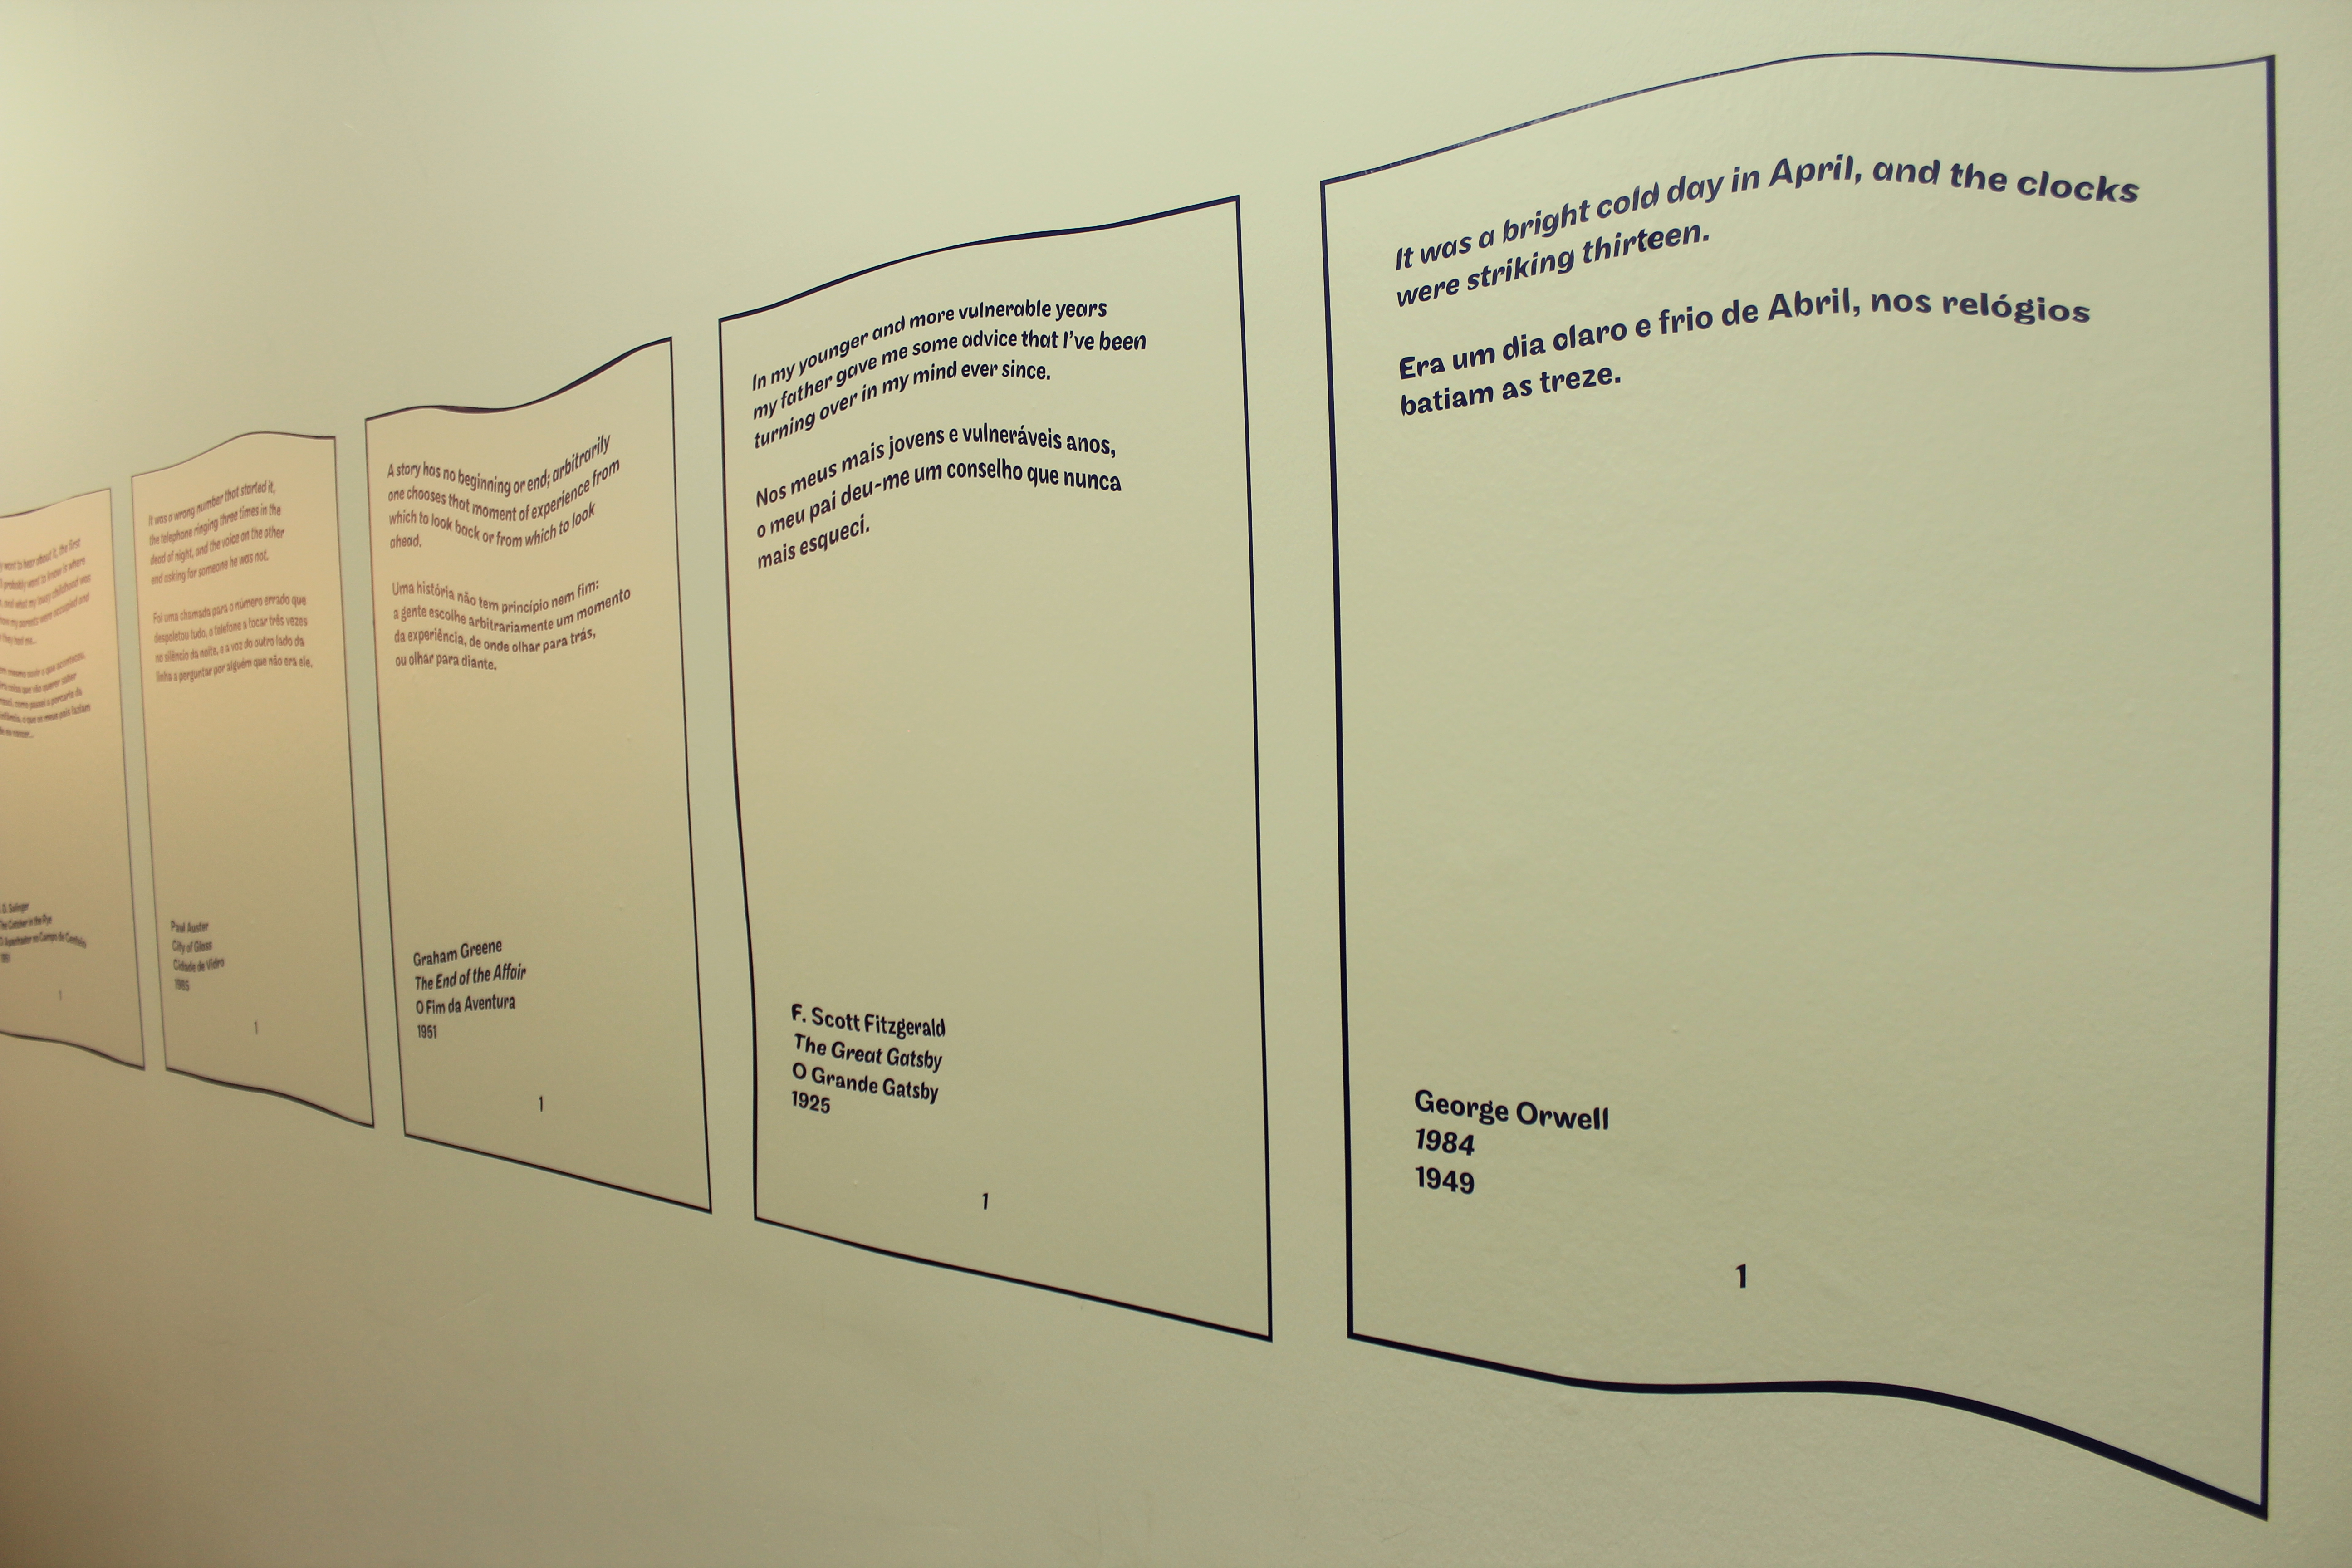 want to hear about it, the first
probably want to know is where
and what my lousy childhood was
how my parents were occupied and
they had me...
J. D. Salinger
The Catcher in the Rye
O Apanhador no Campo de Centeio
1951
1
It was a wrong number that started it,
the telephone ringing three times in the
dead of night, and the voice on the other
end asking for someone he was not.
Foi uma chamada para o número errado que
despoletou tudo, o telefone a tocar três vezes
no silêncio da noite, e a voz do outro lado da
linha a perguntar por alguém que não era ele.
Paul Auster
City of Glass
Cidade de Vidro
1985
1
A story has no beginning or end; arbitrarily
one chooses that moment of experience from
which to look back or from which to look
ahead.
Uma história não tem princípio nem fim:
a gente escolhe arbitrariamente um momento
da experiência, de onde olhar para trás,
ou olhar para diante.
Graham Greene
The End of the Affair
O Fim da Aventura
1951
1
In my younger and more vulnerable years
my father gave me some advice that I've been
turning over in my mind ever since.
Nos meus mais jovens e vulneráveis anos,
o meu pai deu-me um conselho que nunca
mais esqueci.
F. Scott Fitzgerald
The Great Gatsby
O Grande Gatsby
1925
1
It was a bright cold day in April, and the clocks
were striking thirteen.
Era um dia olaro e frio de Abril, nos relógios
batiam as treze.
George Orwell
1984
1949
1